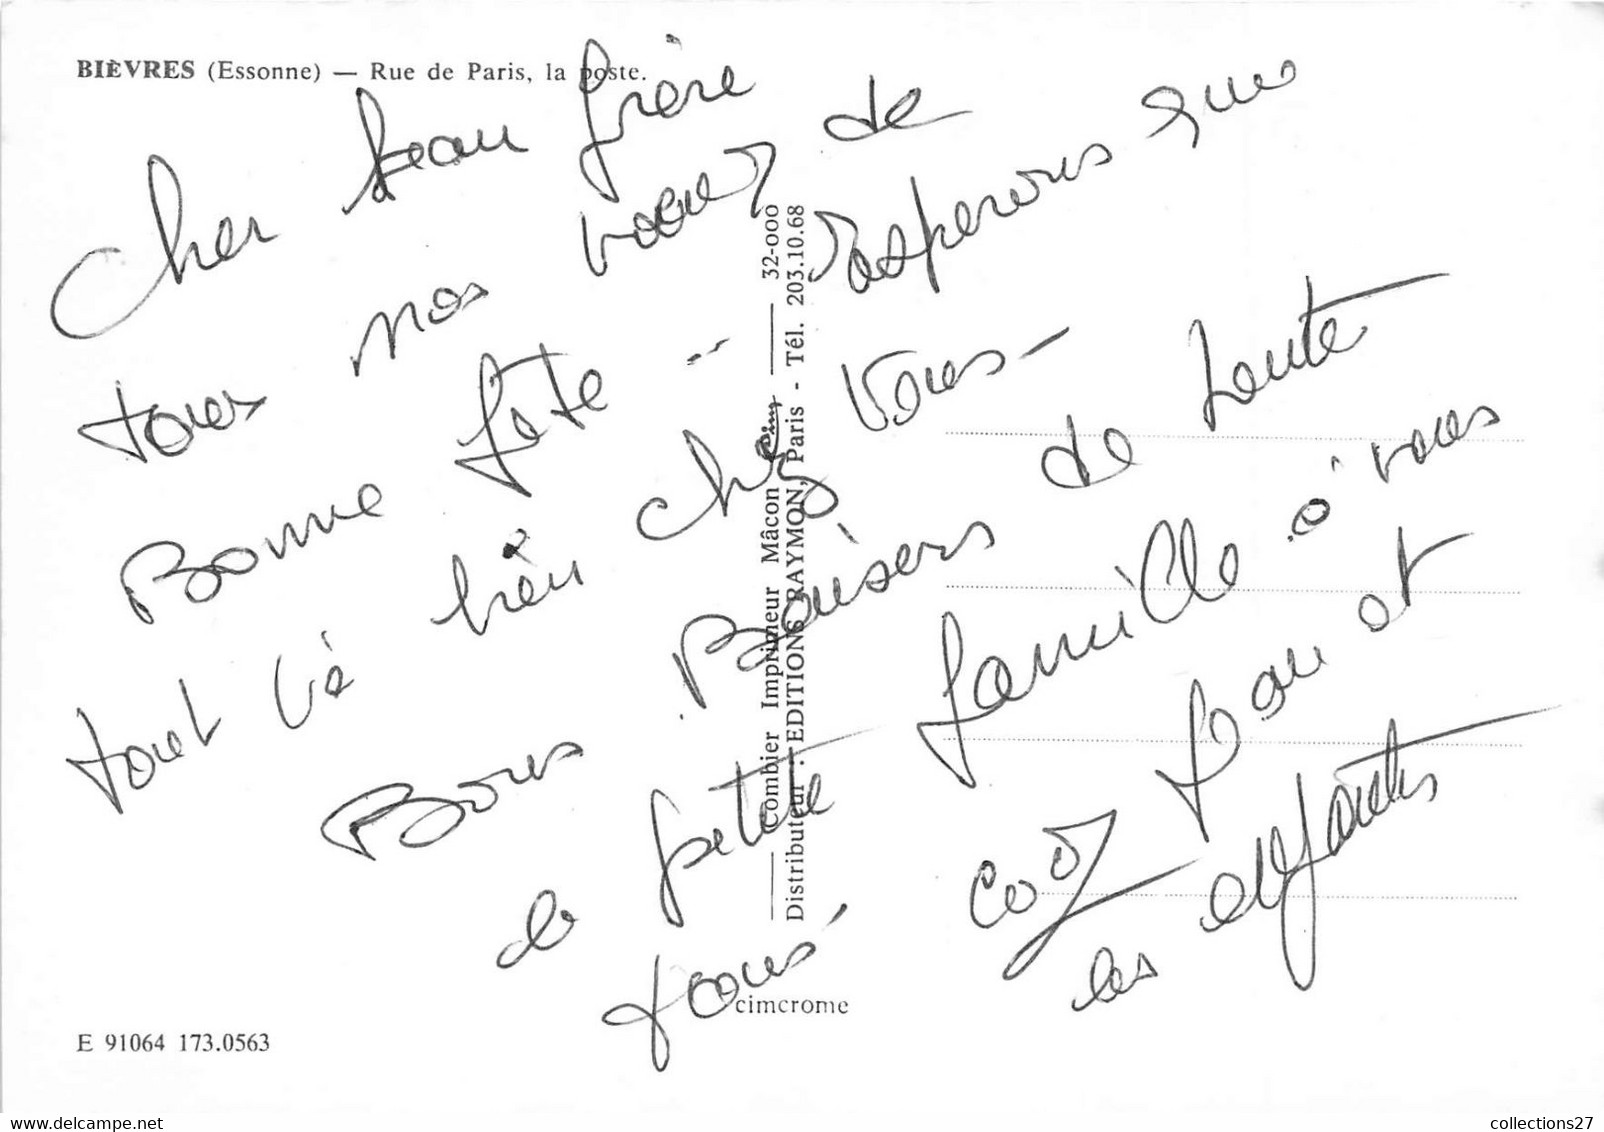 BIÈVRES (Essonne) — Rue de Paris, la poste.
Cher beau frère
tous nos voeux de
Bonne fête - Esperons que
tout va bien chez vous -
Bons Baisers de toute
la petite famille à vous
tous
et
les enfants
Combier Imprimeur Mâcon
32-000
Distributeur : EDITIONS RAYMON, Paris - Tél. 203.10.68
cim
cimcrome
E 91064 173.0563
collections27
www.delcampe.net